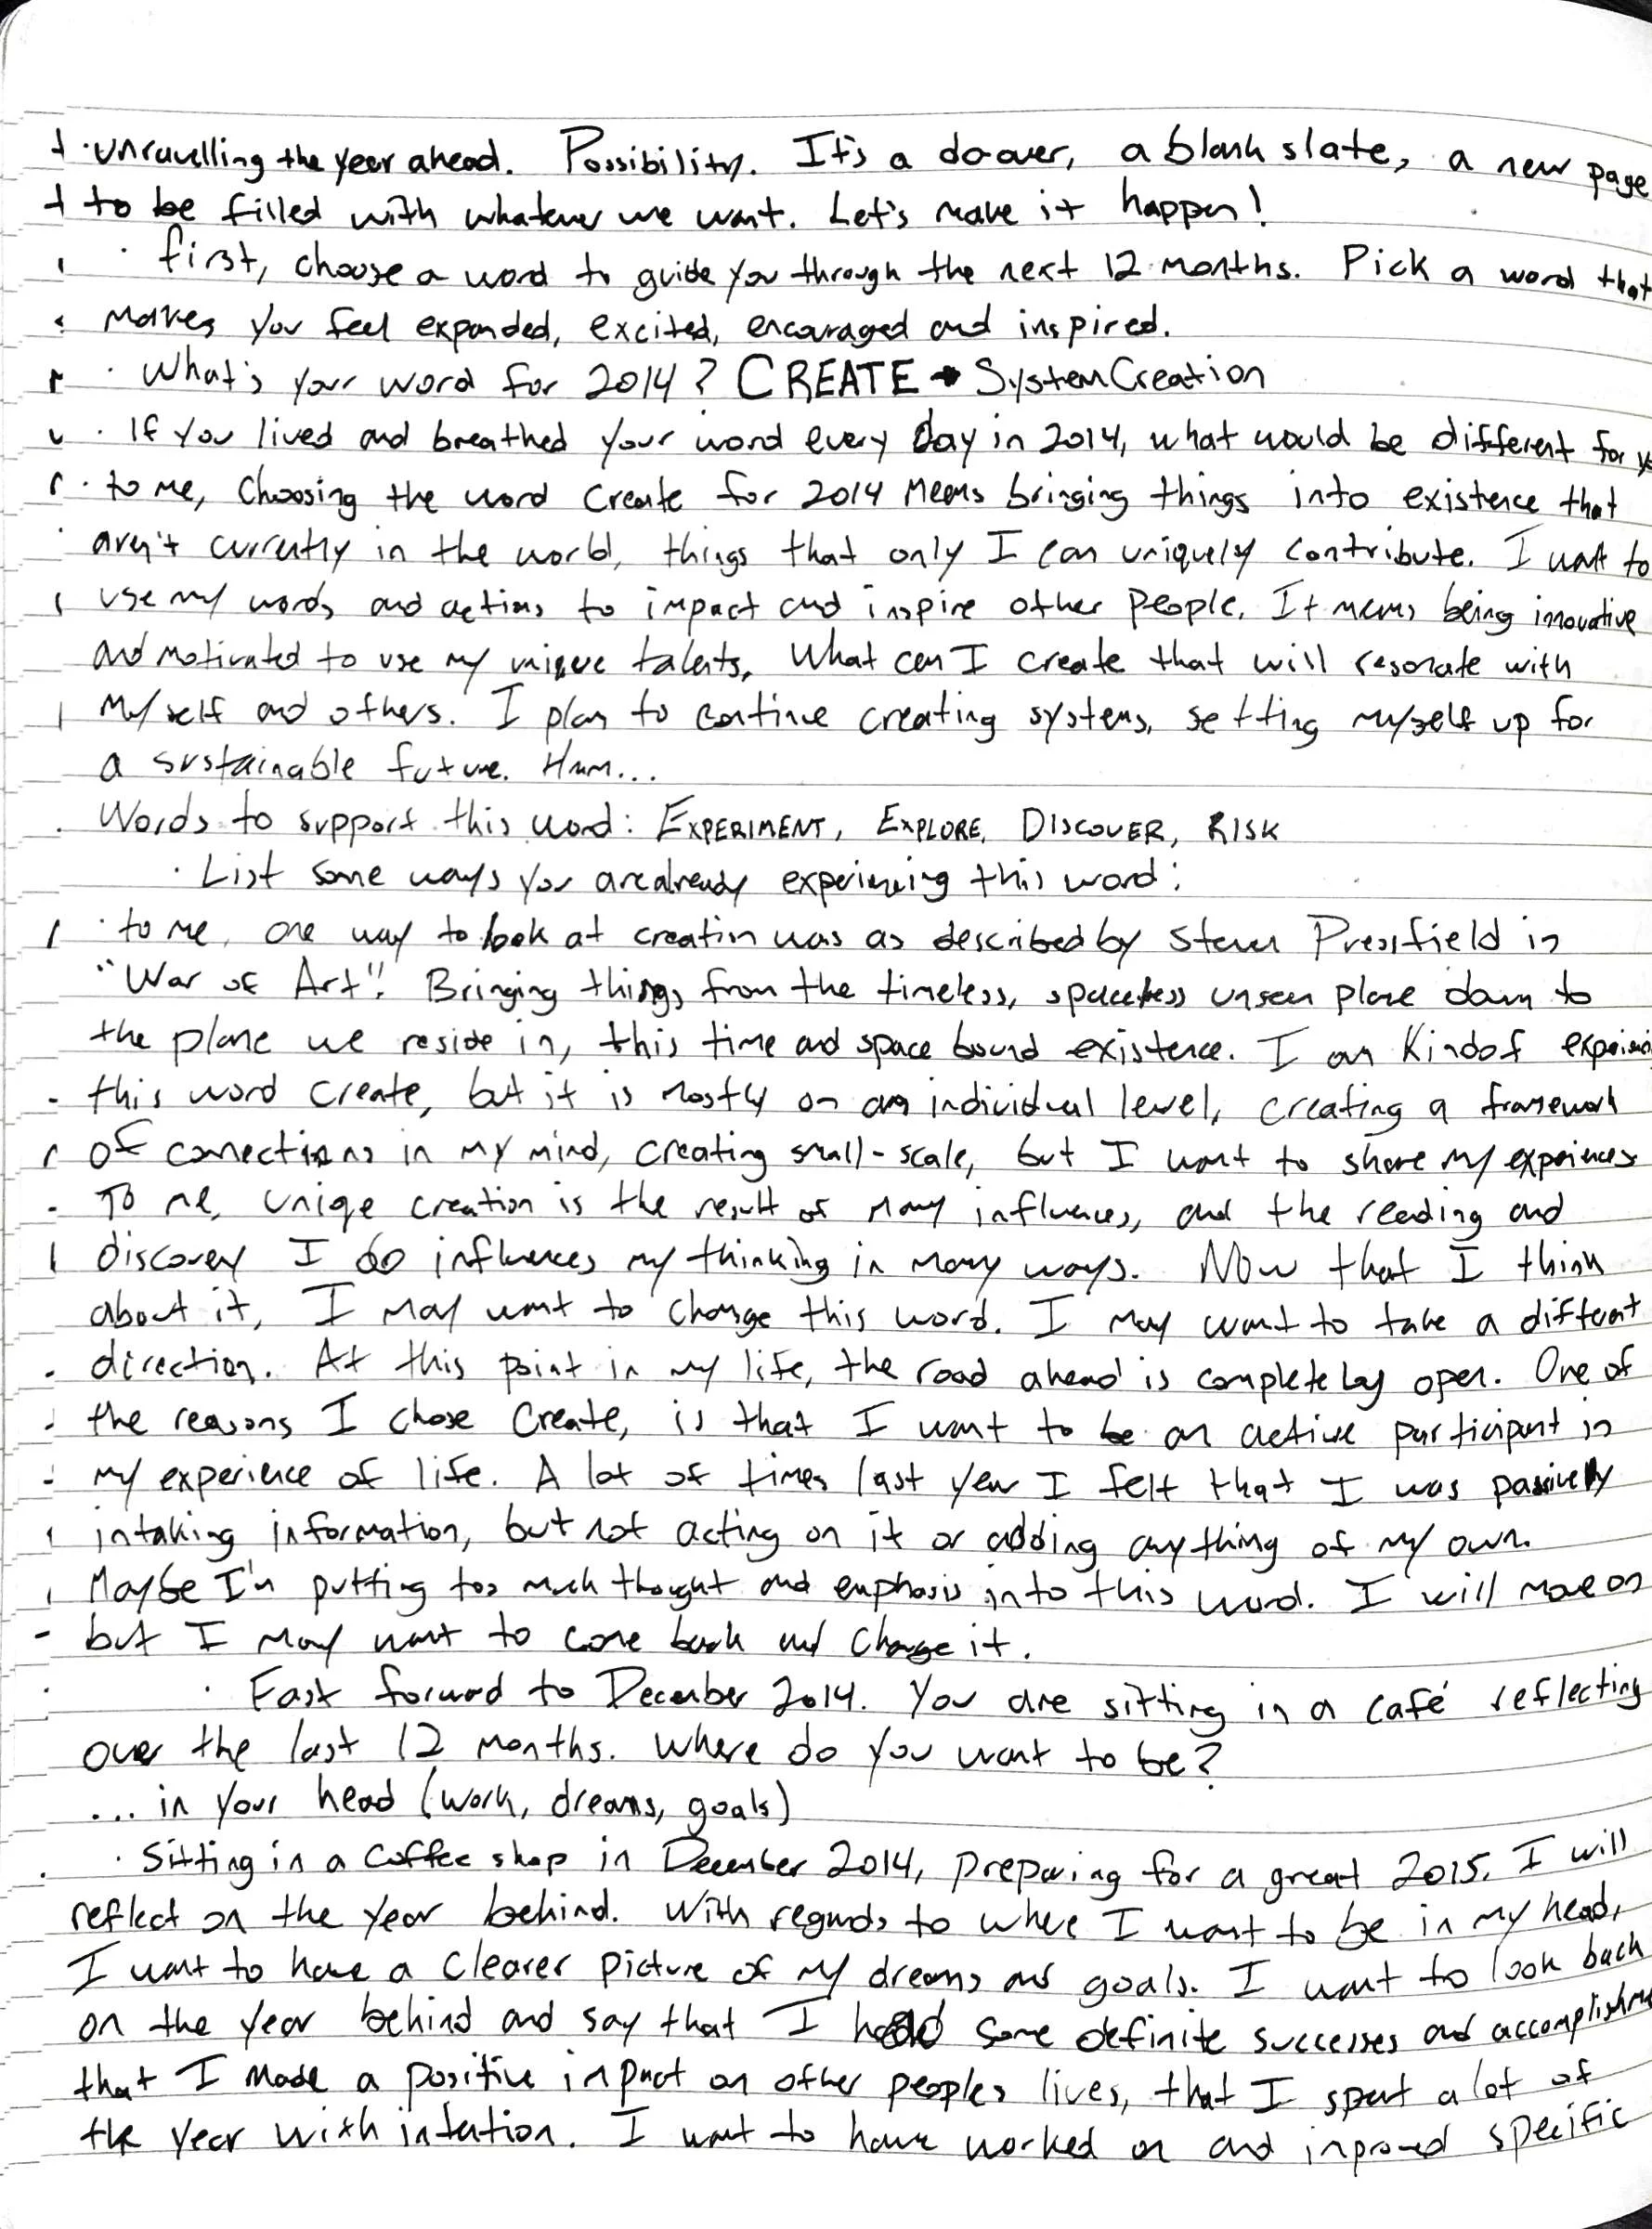 · unravelling the year ahead. Possibility. It's a do-over, a blank slate, a new page
to be filled with whatever we want. Let's make it happen!
· first, choose a word to guide you through the next 12 months. Pick a word that
makes you feel expanded, excited, encouraged and inspired.
· What's your word for 2014? CREATE → System Creation
· If you lived and breathed your word every day in 2014, what would be different for
· to me, choosing the word create for 2014 means bringing things into existence that
aren't currently in the world, things that only I can uniquely contribute. I want to
use my words and actions to impact and inspire other people. It means being innovative
and motivated to use my unique talents. What can I create that will resonate with
myself and others. I plan to continue creating systems, setting myself up for
a sustainable future. Hmm...
Words to support this word: EXPERIMENT, EXPLORE, DISCOVER, RISK
· List some ways you are already experiencing this word:
· to me, one way to look at creation was as described by Steven Pressfield in
"War of Art". Bringing things from the timeless, spaceless unseen plane down to
the plane we reside in, this time and space bound existence. I am kind of
this word create, but it is mostly on an individual level, creating a framework
of connections in my mind, creating small-scale, but I want to share my experiences
To me, uniqe creation is the result of many influences, and the reading and
discovery I do influences my thinking in many ways. Now that I think
about it, I may want to change this word. I may want to take a different
direction. At this point in my life, the road ahead is completely open. One of
the reasons I chose Create, is that I want to be an active participant in
my experience of life. A lot of times last year I felt that I was passively
intaking information, but not acting on it or adding anything of my own.
Maybe I'm putting too much thought and emphasis into this word. I will move on
but I may want to come back and change it.
· Fast forward to December 2014. You are sitting in a café reflecting
over the last 12 months. Where do you want to be?
... in your head (work, dreams, goals)
· Sitting in a coffee shop in December 2014, preparing for a great 2015. I will
reflect on the year behind. With regards to where I want to be in my head,
I want to have a clearer picture of my dreams and goals. I want to look back
on the year behind and say that I had some definite successes and
that I made a positive impact on other peoples lives, that I spent a lot of
the year with intention. I want to have worked on and improved specific